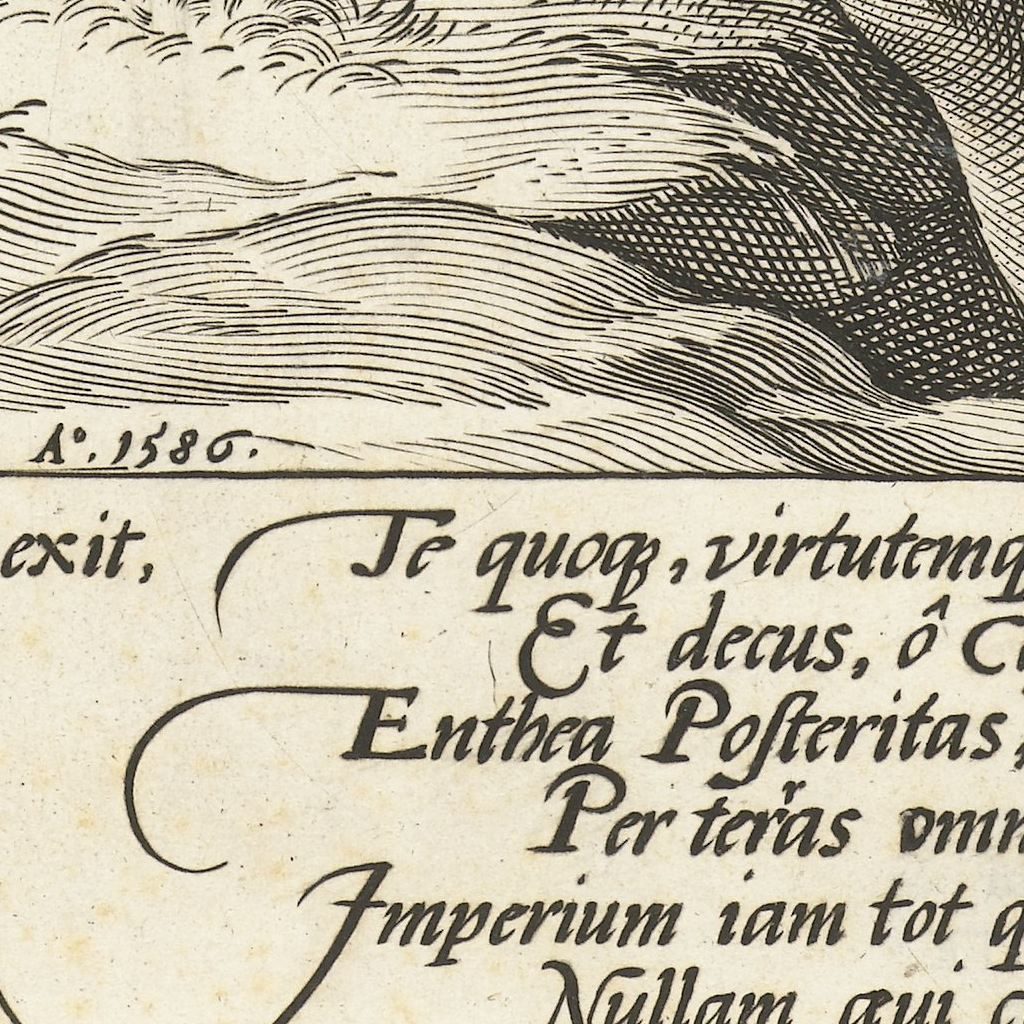 Aº. 1586.
exit,
Te quoq3, virtutemq
Et decus, ô C
Enthea Poſteritas,
Per terras omn
Imperium iam tot q
Nullam æui c